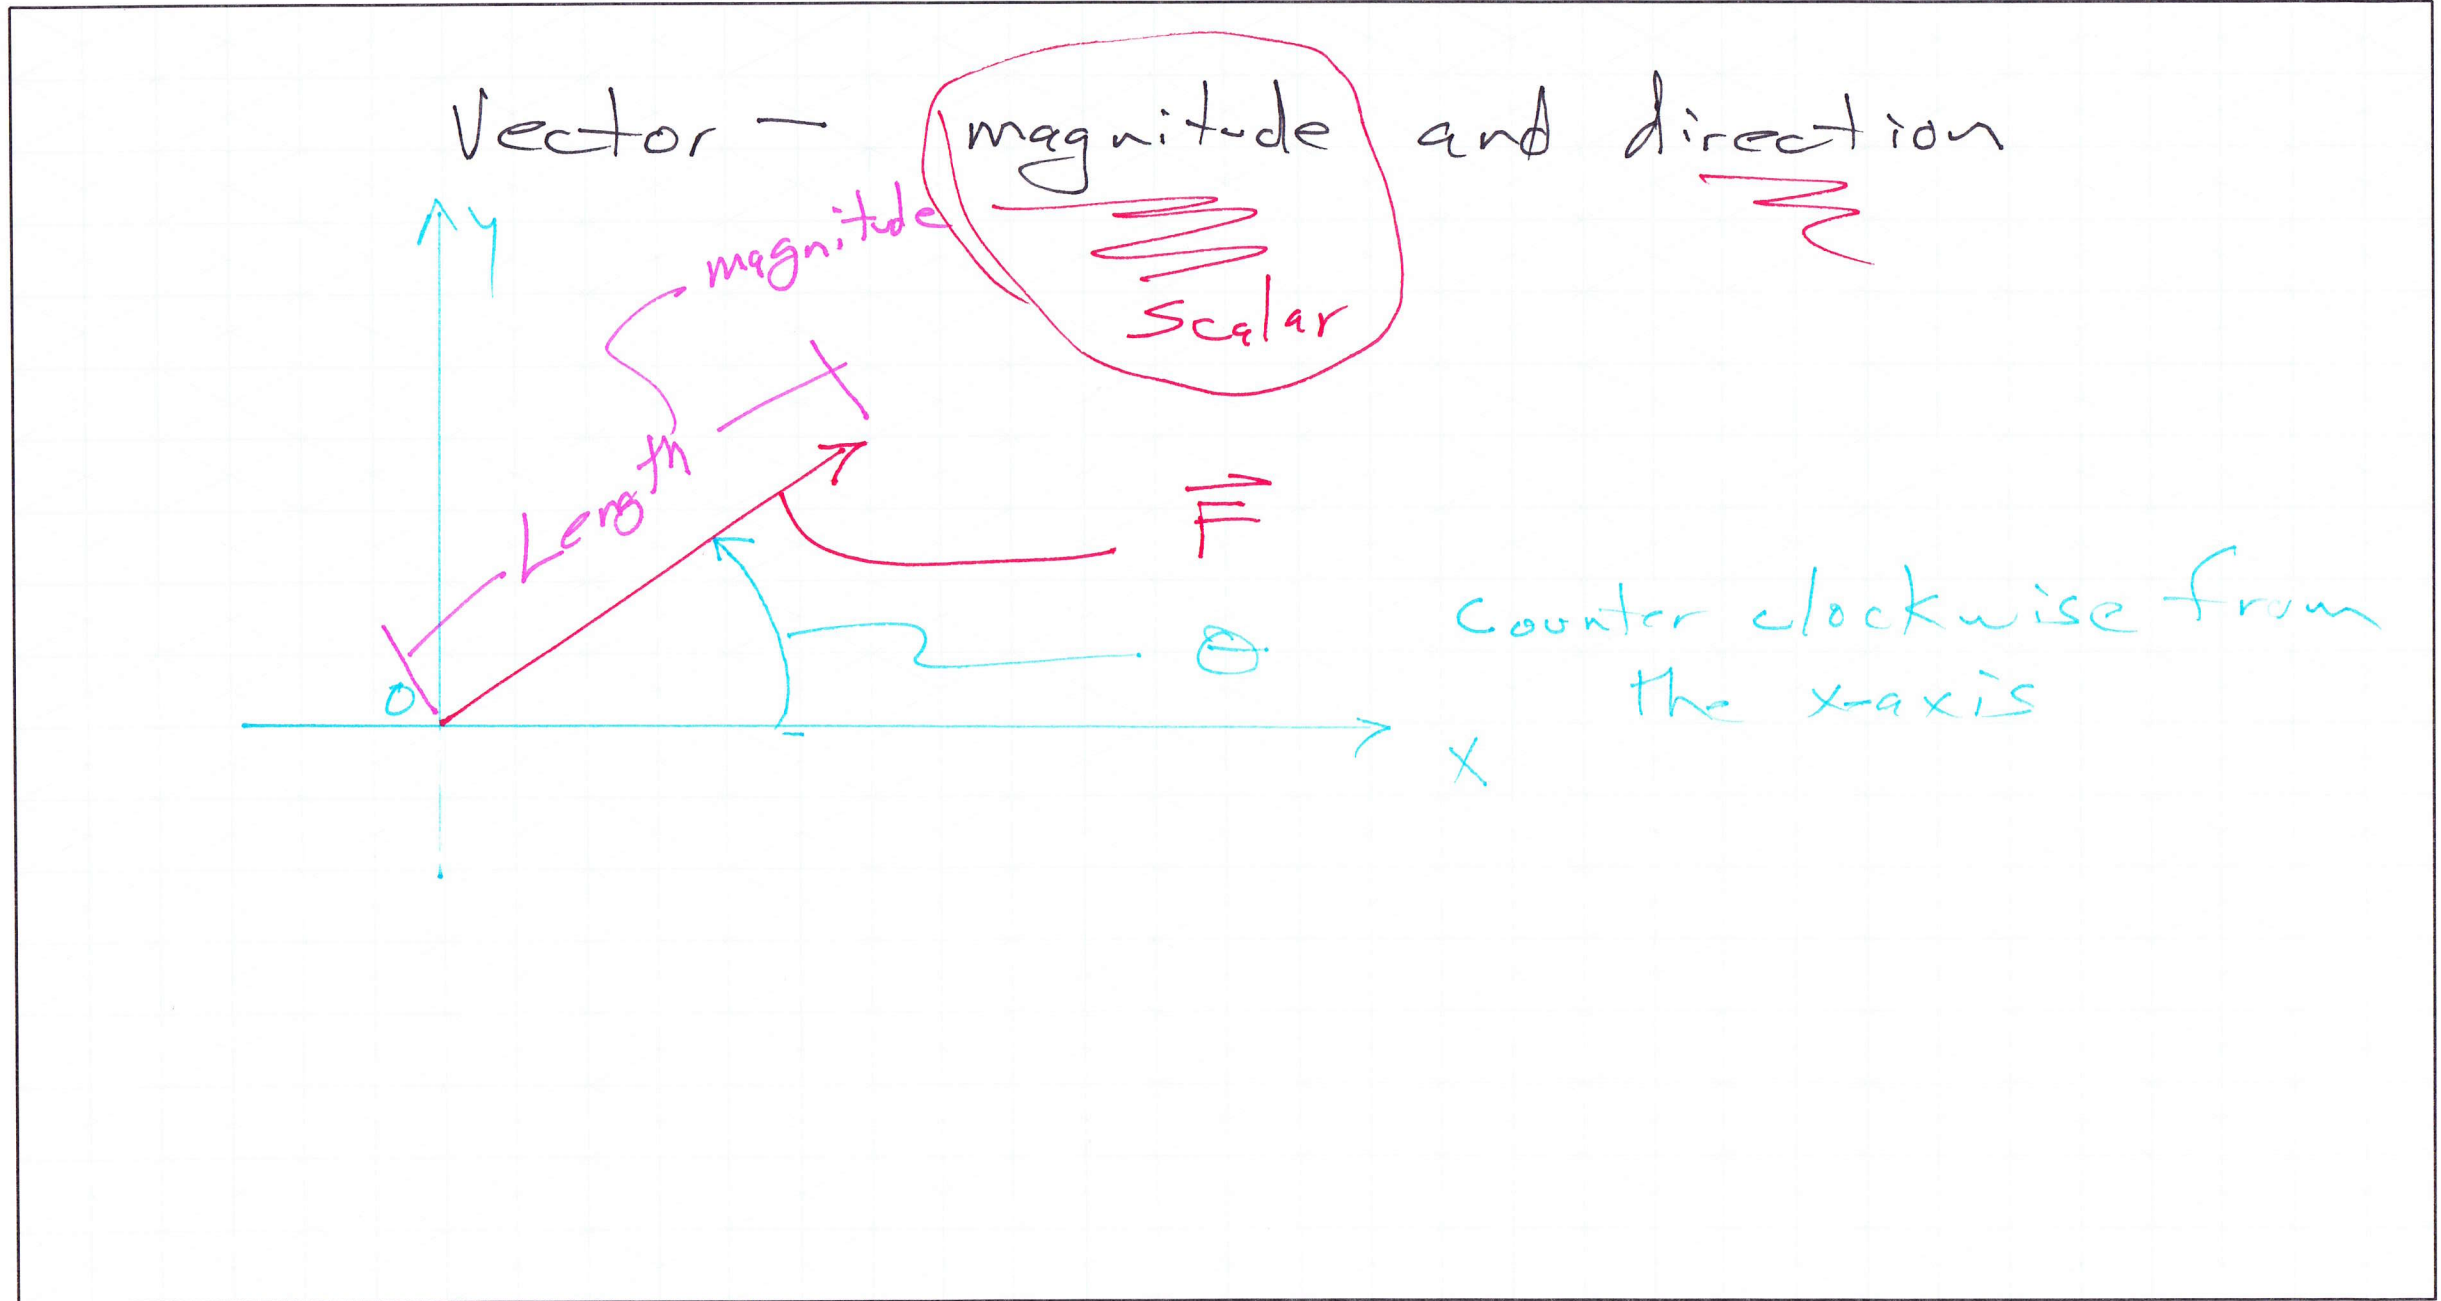 Vector - magnitude and direction
scalar
y
magnitude
Length
F
θ
counter clockwise from
the x-axis
O
x